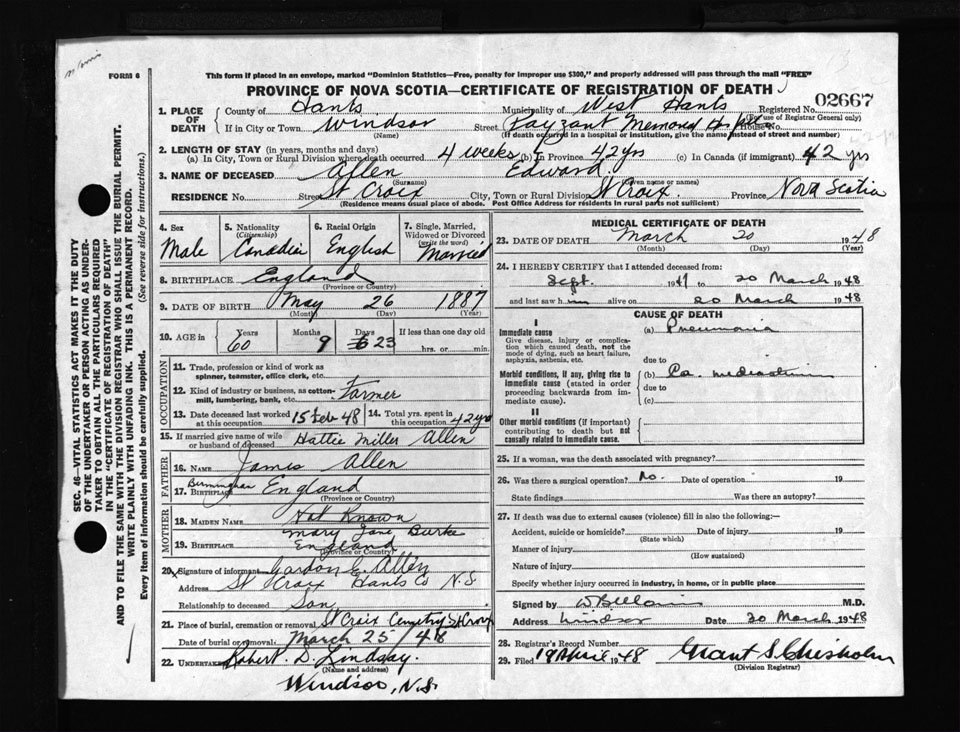 FORM 6
This form if placed in an envelope, marked "Dominion Statistics—Free, penalty for improper use $300," and properly addressed will pass through the mail "FREE"
PROVINCE OF NOVA SCOTIA—CERTIFICATE OF REGISTRATION OF DEATH
1. PLACE OF DEATH
County of Hants
Municipality of West Hants
Registered No. 02667
(For use of Registrar General only)
If in City or Town Windsor
(Name)
Street Payzant Memorial Hospital House No.
(If death occurred in a hospital or institution, give the name instead of street and number)
2. LENGTH OF STAY (in years, months and days)
(a) In City, Town or Rural Division where death occurred 4 weeks (b) In Province 42 yrs (c) In Canada (if immigrant) 42 yrs
3. NAME OF DECEASED Allen Edward.
(Surname) (Given name or names)
RESIDENCE No. Street St Croix City, Town or Rural Division St Croix. Province Nova Scotia
(Residence means usual place of abode. Post Office Address for residents in rural parts not sufficient)
SEC. 46—VITAL STATISTICS ACT MAKES IT THE DUTY
OF THE UNDERTAKER OR PERSON ACTING AS UNDERTAKER TO OBTAIN ALL THE PARTICULARS REQUIRED
IN THE "CERTIFICATE OF REGISTRATION OF DEATH"
AND TO FILE THE SAME WITH THE DIVISION REGISTRAR WHO SHALL ISSUE THE BURIAL PERMIT.
WRITE PLAINLY WITH UNFADING INK. THIS IS A PERMANENT RECORD.
Every item of information should be carefully supplied. (See reverse side for instructions.)
4. Sex
Male
5. Nationality
(Citizenship)
Canadian
6. Racial Origin
English
7. Single, Married, Widowed or Divorced
(write the word)
Married
8. BIRTHPLACE England
(Province or Country)
9. DATE OF BIRTH May 26 1887
(Month) (Day) (Year)
10. AGE in Years 60 Months 9 Days 23 If less than one day old
hrs. or min.
OCCUPATION
11. Trade, profession or kind of work as
spinner, teamster, office clerk, etc.
12. Kind of industry or business, as cotton-
mill, lumbering, bank, etc. Farmer
13. Date deceased last worked at this occupation 15 Feb 48
14. Total yrs. spent in this occupation 42 yrs
15. If married give name of wife
or husband of deceased Hattie Miller Allen
FATHER
16. NAME James Allen
17. BIRTHPLACE Birmingham England
(Province or Country)
MOTHER
18. MAIDEN NAME Not Known
Mary Jane Burke
19. BIRTHPLACE England
(Province or Country)
20. Signature of informant Gordon E. Allen
Address St Croix Hants Co N.S
Relationship to deceased Son
21. Place of burial, cremation or removal St Croix Cemetry St Croix
Date of burial or removal March 25/48
22. UNDERTAKER Robert. D. Lindsay.
(Name and address)
Windsor, N.S.
MEDICAL CERTIFICATE OF DEATH
23. DATE OF DEATH March 20 1948
(Month) (Day) (Year)
24. I HEREBY CERTIFY that I attended deceased from:
Sept. 1947 to 20 March 1948
and last saw him alive on 20 March 1948
CAUSE OF DEATH
I
Immediate cause
Give disease, injury or complica-
tion which caused death, not the
mode of dying, such as heart failure,
asphyxia, asthenia, etc.
(a) Pneumonia
due to
Morbid conditions, if any, giving rise to
immediate cause (stated in order
proceeding backwards from im-
mediate cause).
(b) Ca. mediastinum
due to
(c)
II
Other morbid conditions (if important)
contributing to death but not
causally related to immediate cause.
25. If a woman, was the death associated with pregnancy?
26. Was there a surgical operation? No. Date of operation 19
State findings Was there an autopsy?
27. If death was due to external causes (violence) fill in also the following:—
Accident, suicide or homicide? Date of injury 19
(State which)
Manner of injury
(How sustained)
Nature of injury
Specify whether injury occurred in industry, in home, or in public place
Signed by M.D.
Address Windsor Date 20 March 1948
28. Registrar's Record Number
29. Filed 19 April 1948 Grant S. Chisholm
(Division Registrar)